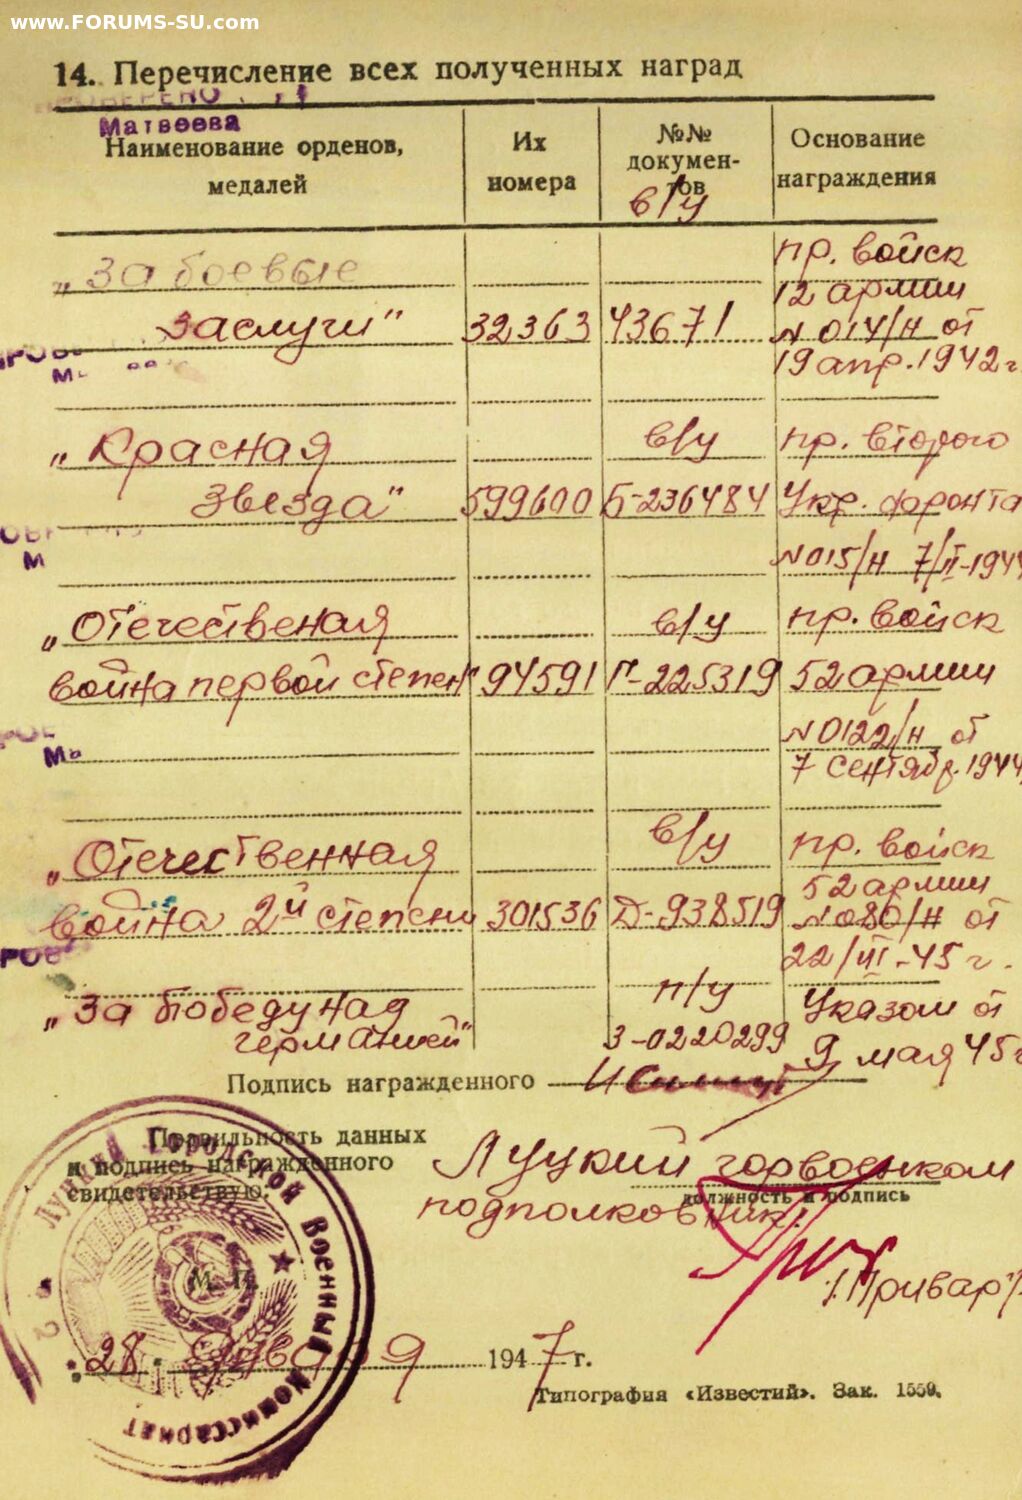 www.FORUMS-SU.com
14. Перечисление всех полученных наград
ПРОВЕРЕНО
Матвеева
Наименование орденов, медалей
Их номера
№№ докумен-тов
Основание награждения
в/у
„За боевые
пр. войск
12 армии
заслуги"
32363
43671
N 014/н от
19 апр. 1942 г
„Красная
в/у
пр. второго
Звезда"
599600
Б-236484
Укр. фронта
N 015/н 7/II-1944
„Отечественая
в/у
пр. войск
война первой степен"
94591
Г-225319
52 армии
N 0122/н от
7 сентябр. 1944
„Отечественная
в/у
пр. войск
52 армии
война 2й степени
301536
Д-938519
N 080/н от
22/III-45 г.
„За победу над
п/у
Указом от
германией"
З-0220299
9 мая 45г
Подпись награжденного
Правильность данных
и подпись награжденного
свидетельствую.
Луцкий горвоенком
должность и подпись
подполковник:
/Привар/
Луцкий Городской Военный Комиссариат
М. П.
28 Января 1947 г.
Типография «Известий». Зак. 1559.